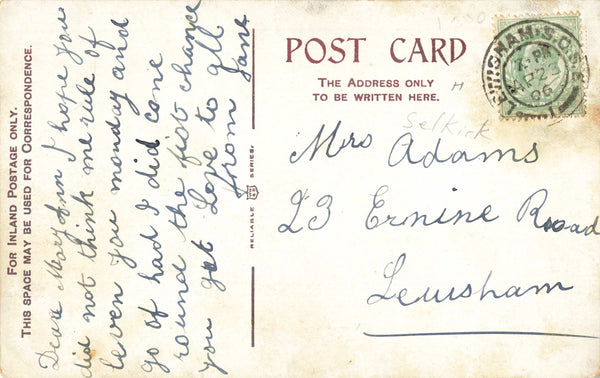 FOR INLAND POSTAGE ONLY.
THIS SPACE MAY BE USED FOR CORRESPONDENCE.
Dear Mary Ann I hope you
did not think me rule of
leven you monday and
go of had I did come
round the fist chance
you get Love to all
from Jane
RELIABLE SERIES.
POST CARD
THE ADDRESS ONLY
TO BE WRITTEN HERE.
H
Selkirk
LEWISHAM S.O. S.E.
22
06
Mrs Adams
23 Ernine Road
Lewsham